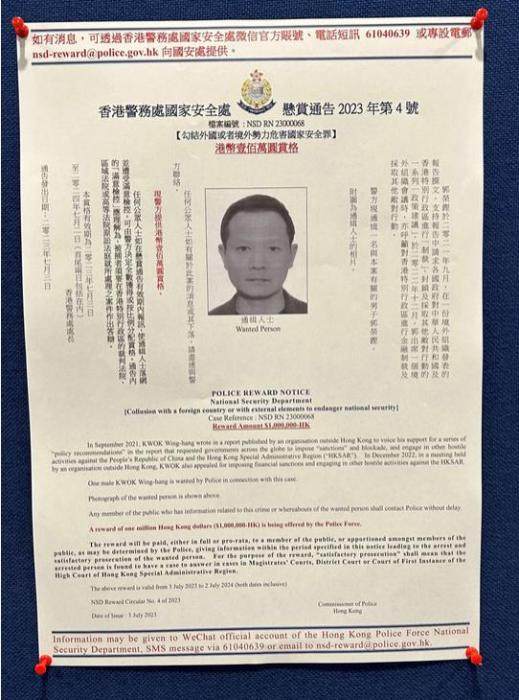 如有消息，可透過香港警務處國家安全處微信官方賬號、電話短訊 61040639 或專設電郵
nsd-reward@police.gov.hk 向國安處提供。
香港警務處國家安全處 懸賞通告 2023 年第 4 號
檔案編號：NSD RN 23000068
【勾結外國或者境外勢力危害國家安全罪】
港幣壹佰萬圓賞格
郭榮鏗於二零二一年九月，在一份境外組織發表的
報告撰文，支持報告中請求各國政府對中華人民共和國及
香港特別行政區進行「制裁」、封鎖及採取其他敵對行動的
一系列「政策建議」。於二零二二年十二月，郭出席一個境
外組織會議時，亦呼籲對香港特別行政區進行金融制裁及
採取其他敵對行動。
警方現通緝一名與本案有關的男子郭榮鏗。
附圖為通緝人士的相片。
任何公眾人士如有關於此案的消息或其下落，請盡速與警
方聯絡。
現警方提供港幣壹佰萬圓賞格。
任何公眾人士如在懸賞通告有效期內報訊，使通緝人士落網
並遭受滿意檢控，可由警方決定全數獲得或按比例分配賞格。通告內
的「滿意檢控」應理解為，被捕者須要在香港特別行政區的裁判法院、
區域法院或高等法院原訟法庭就所處理之案件作出答辯。
本賞格有效期為二零二三年七月三日
至二零二四年七月二日（首尾兩日包括在內）
香港警務處處長
通告發出日期：二零二三年七月三日
通緝人士
Wanted Person
POLICE REWARD NOTICE
National Security Department
[Collusion with a foreign country or with external elements to endanger national security]
Case Reference : NSD RN 23000068
Reward Amount $1,000,000-HK
In September 2021, KWOK Wing-hang wrote in a report published by an organisation outside Hong Kong to voice his support for a series of
"policy recommendations" in the report that requested governments across the globe to impose "sanctions" and blockade, and engage in other hostile
activities against the People's Republic of China and the Hong Kong Special Administrative Region ("HKSAR"). In December 2022, in a meeting held
by an organisation outside Hong Kong, KWOK also appealed for imposing financial sanctions and engaging in other hostile activities against the HKSAR.
One male KWOK Wing-hang is wanted by Police in connection with this case.
Photograph of the wanted person is shown above.
Any member of the public who has information related to this crime or whereabouts of the wanted person shall contact Police without delay.
A reward of one million Hong Kong dollars ($1,000,000-HK) is being offered by the Police Force.
The reward will be paid, either in full or pro-rata, to a member of the public, or apportioned amongst members of the
public, as may be determined by the Police, giving information within the period specified in this notice leading to the arrest and
satisfactory prosecution of the wanted person. For the purpose of the reward, "satisfactory prosecution" shall mean that the
arrested person is found to have a case to answer in cases in Magistrates' Courts, District Court or Court of First Instance of the
High Court of Hong Kong Special Administrative Region.
The above reward is valid from 3 July 2023 to 2 July 2024 (both dates inclusive)
NSD Reward Circular No. 4 of 2023
Commissioner of Police
Hong Kong
Date of Issue : 3 July 2023
Information may be given to WeChat official account of the Hong Kong Police Force National
Security Department, SMS message via 61040639 or email to nsd-reward@police.gov.hk.